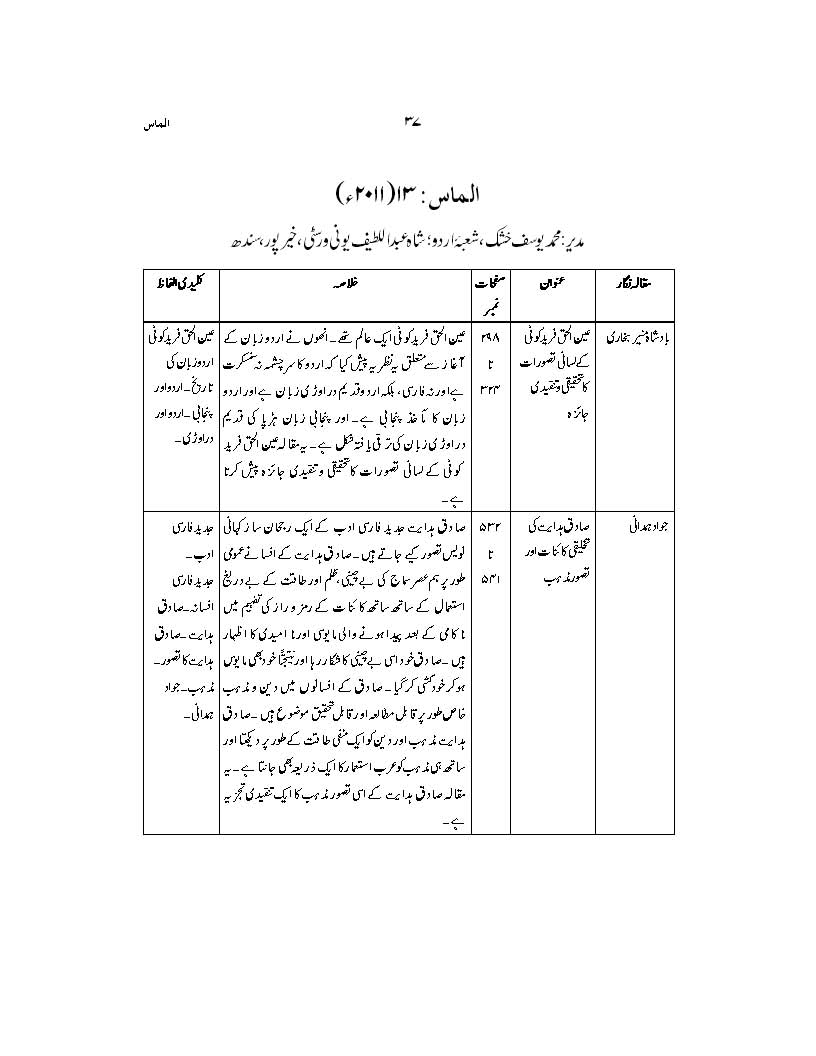 الماس
۳۷
الماس: ۱۳(۲۰۱۱ء)
مدیر: محمد یوسف خشک، شعبۂ اردو؛ شاہ عبداللطیف یونی ورسٹی، خیر پور، سندھ
مقالہ نگار
عنوان
صفحات
نمبر
خلاصہ
کلیدی الفاظ
بادشاہ منیر بخاری
عین الحق فرید کوٹی
کے لسانی تصورات
کا تحقیقی و تنقیدی
جائزہ
۲۹۸
تا
۳۲۳
عین الحق فرید کوٹی ایک عالم تھے۔ انھوں نے اردو زبان کے
آغاز سے متعلق یہ نظریہ پیش کیا کہ اردو کا سرچشمہ نہ سنسکرت
ہے اور نہ فارسی، بلکہ اردو قدیم دراوڑی زبان ہے اور اردو
زبان کا مآخذ پنجابی ہے۔ اور پنجابی زبان ہڑپا کی قدیم
دراوڑی زبان کی ترقی یافتہ شکل ہے۔ یہ مقالہ عین الحق فرید
کوٹی کے لسانی تصورات کا تحقیقی و تنقیدی جائزہ پیش کرتا
ہے۔
عین الحق فرید کوٹی
اردو زبان کی
تاریخ۔ اردو اور
پنجابی۔ اردو اور
دراوڑی۔
جواد ہمدانی
صادق ہدایت کی
تخلیقی کائنات اور
تصور مذہب
۵۳۲
تا
۵۴۱
صادق ہدایت جدید فارسی ادب کے ایک رجحان ساز کہانی
نویس تصور کیے جاتے ہیں۔ صادق ہدایت کے افسانے عمومی
طور پر ہم عصر سماج کی بے چینی، ظلم اور طاقت کے بے دریغ
استعمال کے ساتھ ساتھ کائنات کے رمز و راز کی تفہیم میں
ناکامی کے بعد پیدا ہونے والی مایوسی اور نا امیدی کا اظہار
ہیں۔ صادق خود اسی بے چینی کا شکار رہا اور نتیجتاً خود بھی مایوس
ہوکر خودکشی کر گیا۔ صادق کے افسانوں میں دین و مذہب
خاص طور پر قابل مطالعہ اور قابل تحقیق موضوع ہیں۔ صادق
ہدایت مذہب اور دین کو ایک منفی طاقت کے طور پر دیکھتا اور
ساتھ ہی مذہب کو عرب استعمار کا ایک ذریعہ بھی جانتا ہے۔ یہ
مقالہ صادق ہدایت کے اسی تصور مذہب کا ایک تنقیدی تجزیہ
ہے۔
جدید فارسی
ادب۔
جدید فارسی
افسانہ۔ صادق
ہدایت۔ صادق
ہدایت کا تصور۔
مذہب۔ جواد
ہمدانی۔